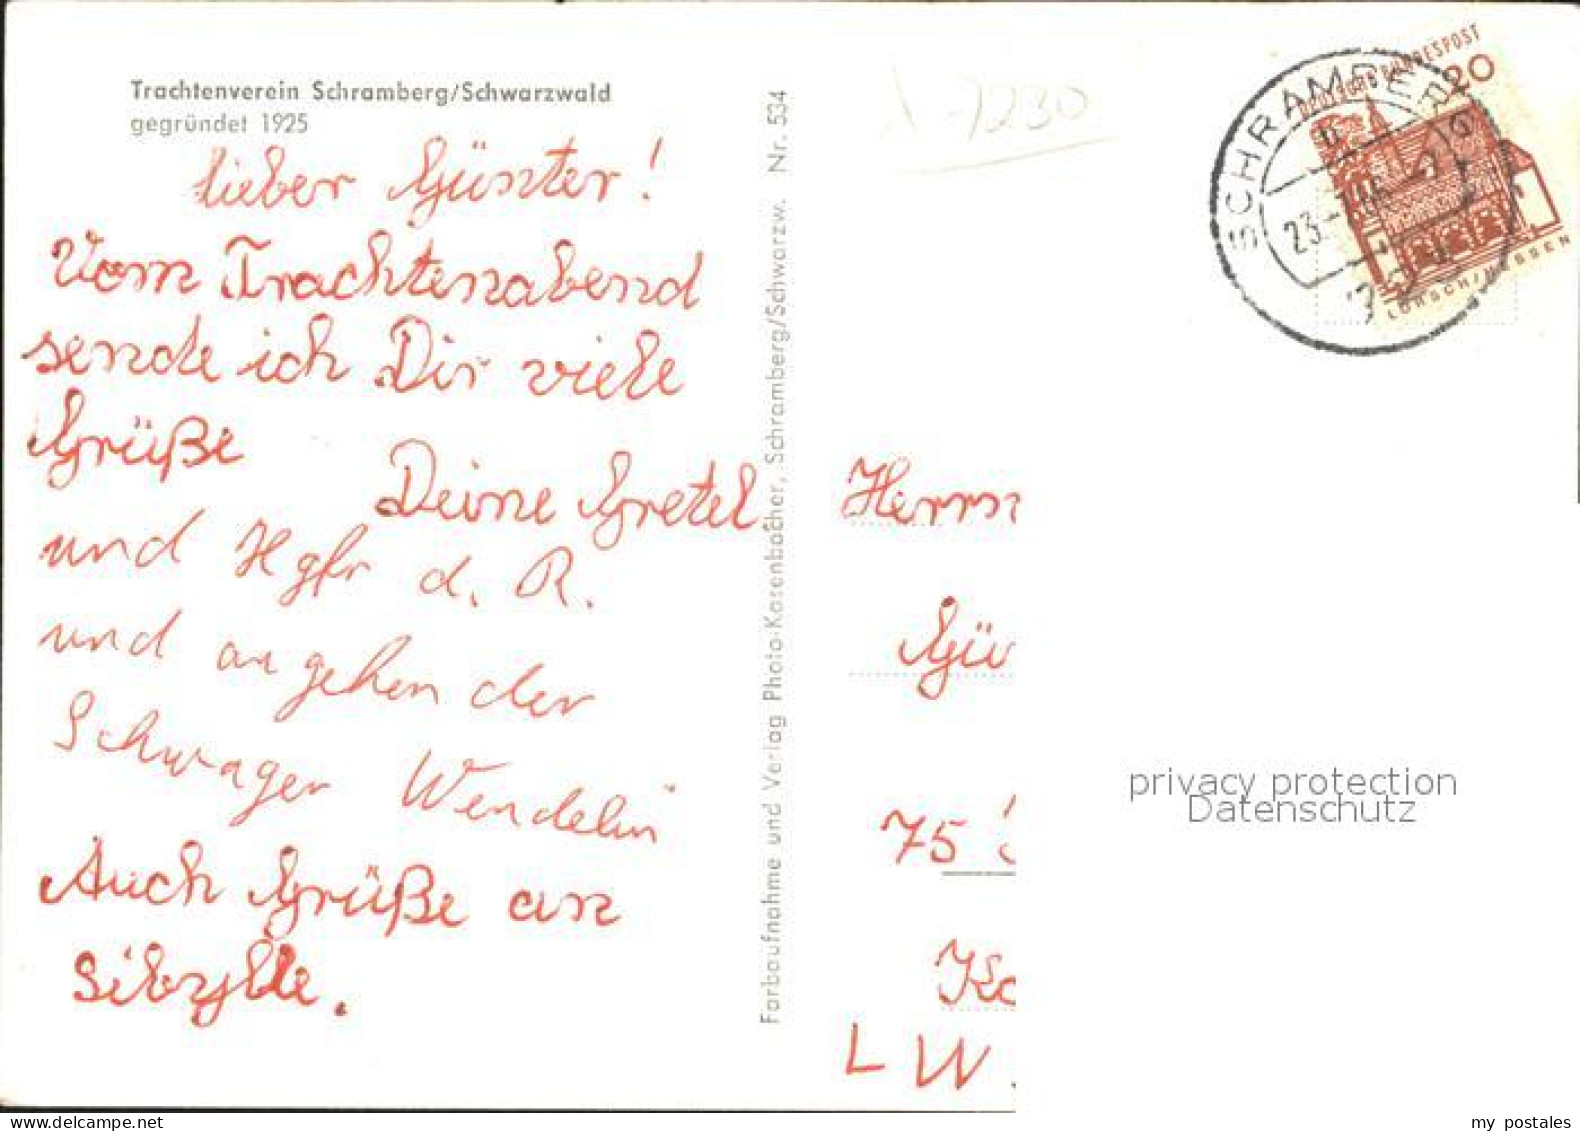 Trachtenverein Schramberg/Schwarzwald
gegründet 1925
lieber Günter!
Vom Trachtenabend
sende ich Dir viele
Grüße
Deine Gretel
und Hgfr d. R.
und angehender
Schwager Wendelin
Auch Grüße an
Sibylle.
Farbaufnahme und Verlag Photo-Kasenbacher, Schramberg/Schwarzw. Nr. 534
λ-7230
SCHRAMBERG
23.
DEUTSCHE BUNDESPOST
20
LORSCH/HESSEN
Herrn
Gü
75
Ka
L W
privacy protection
Datenschutz
my postales